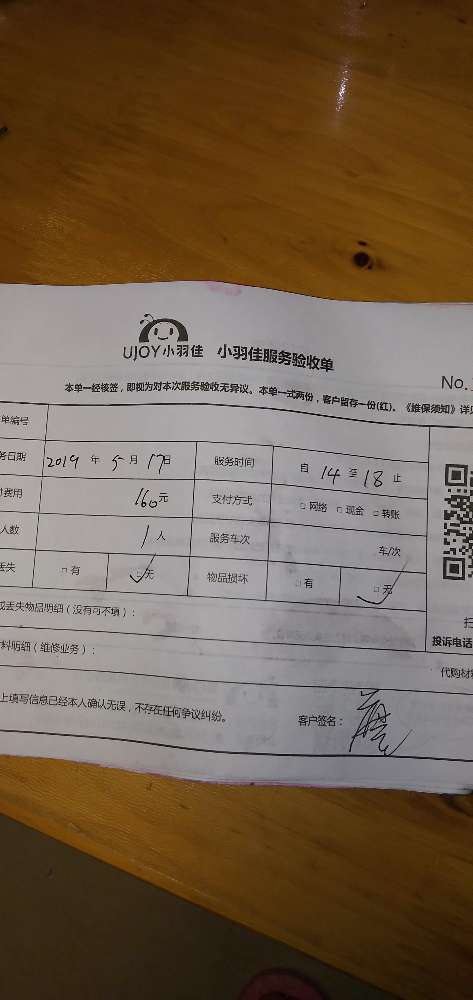 UJOY小羽佳 小羽佳服务验收单
No.
本单一经核签，即视为对本次服务验收无异议。本单一式两份，客户留存一份(红)。《维保须知》详见
单编号
务日期 2019 年 5 月 17日 服务时间 自 14 至 18 止
费用 160元 支付方式 □ 网络 □ 现金 □ 转账
人数 1 人 服务车次 车/次
丢失 □ 有 □ 无 物品损坏 □ 有 □ 无
或丢失物品明细（没有可不填）：
投诉电话
料明细（维修业务）：
代购材
上填写信息已经本人确认无误，不存在任何争议纠纷。 客户签名：